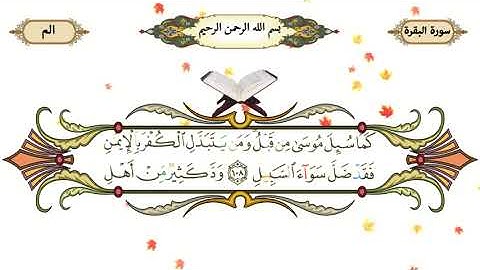 سورة البقرة
بسم الله الرحمن الرحيم
الم
كَمَا سُئِلَ مُوسَىٰ مِن قَبْلُ وَمَن يَتَبَدَّلِ الْكُفْرَ بِالْإِيمَٰنِ
فَقَدْ ضَلَّ سَوَآءَ السَّبِيلِ ١٠٨ وَدَّ كَثِيرٌ مِّنْ أَهْلِ